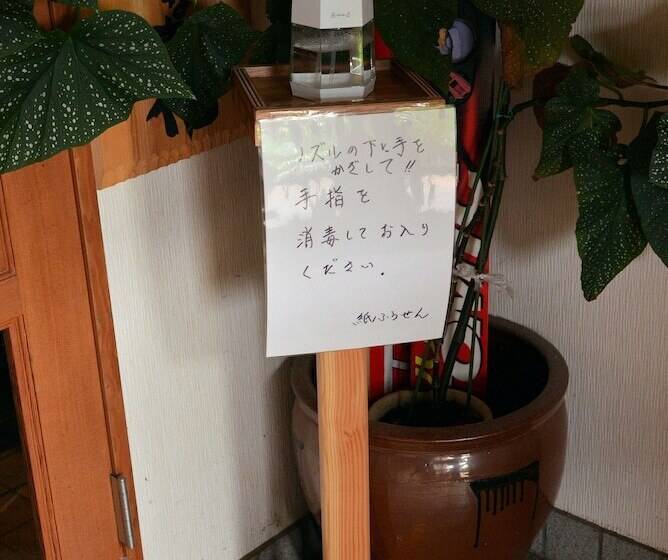 ノズルの下に手を
かざして!!
手指を
消毒してお入り
ください.
紙ふうせん